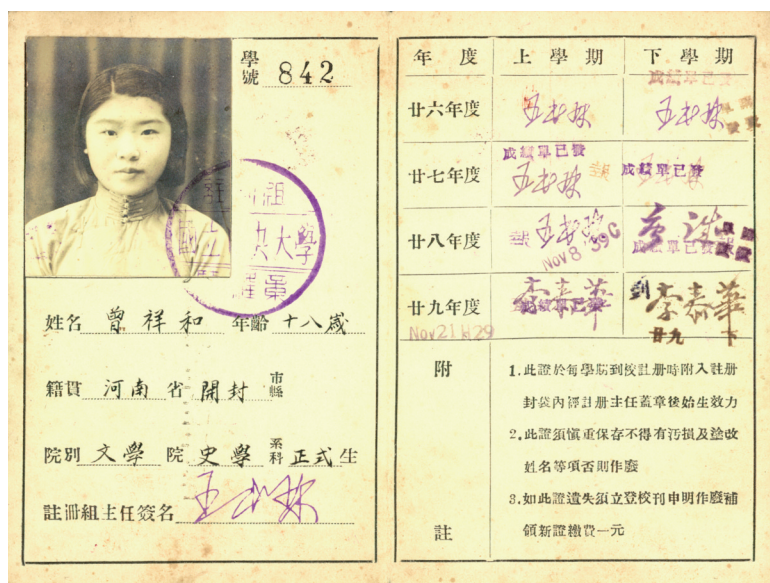 學號 842
姓名 曾祥和 年齡 十八歲
籍貫 河南 省 開封 市縣
院別 文學 院 史學 系科 正式 生
註冊組主任簽名
年度 上學期 下學期
成績單已發
廿六年度
成績單已發 成績單已發
廿七年度
廿八年度
Nov 8 39
成績單已發
廿九年度 李泰華 李泰華
成績單已發
廿九 下
附註
1.此證於每學期到校註册時附入註册
封袋內經註册主任蓋章後始生效力
2.此證須慎重保存不得有汚損及塗改
姓名等項否則作廢
3.如此證遺失須立登校刊申明作廢補
領新證繳費一元